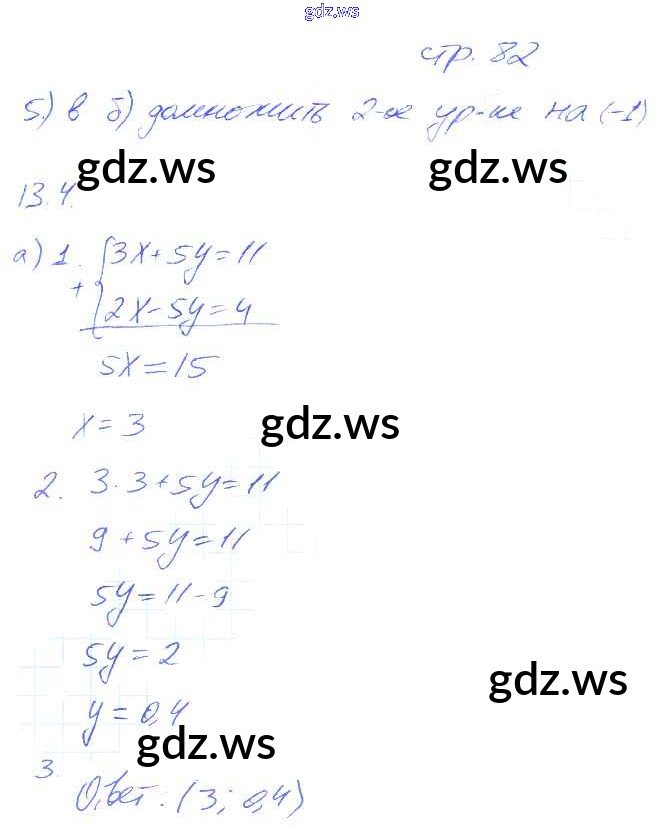 gdz.ws
стр. 82
5.) в б) домножить 2-ое ур-ие на (-1)
gdz.ws gdz.ws
13.4.
а) 1. { 3x + 5y = 11
+ 2x - 5y = 4
5x = 15
x = 3 gdz.ws
2. 3 · 3 + 5y = 11
9 + 5y = 11
5y = 11 - 9
5y = 2
gdz.ws
y = 0,4
gdz.ws
3.
Ответ: (3; 0,4)